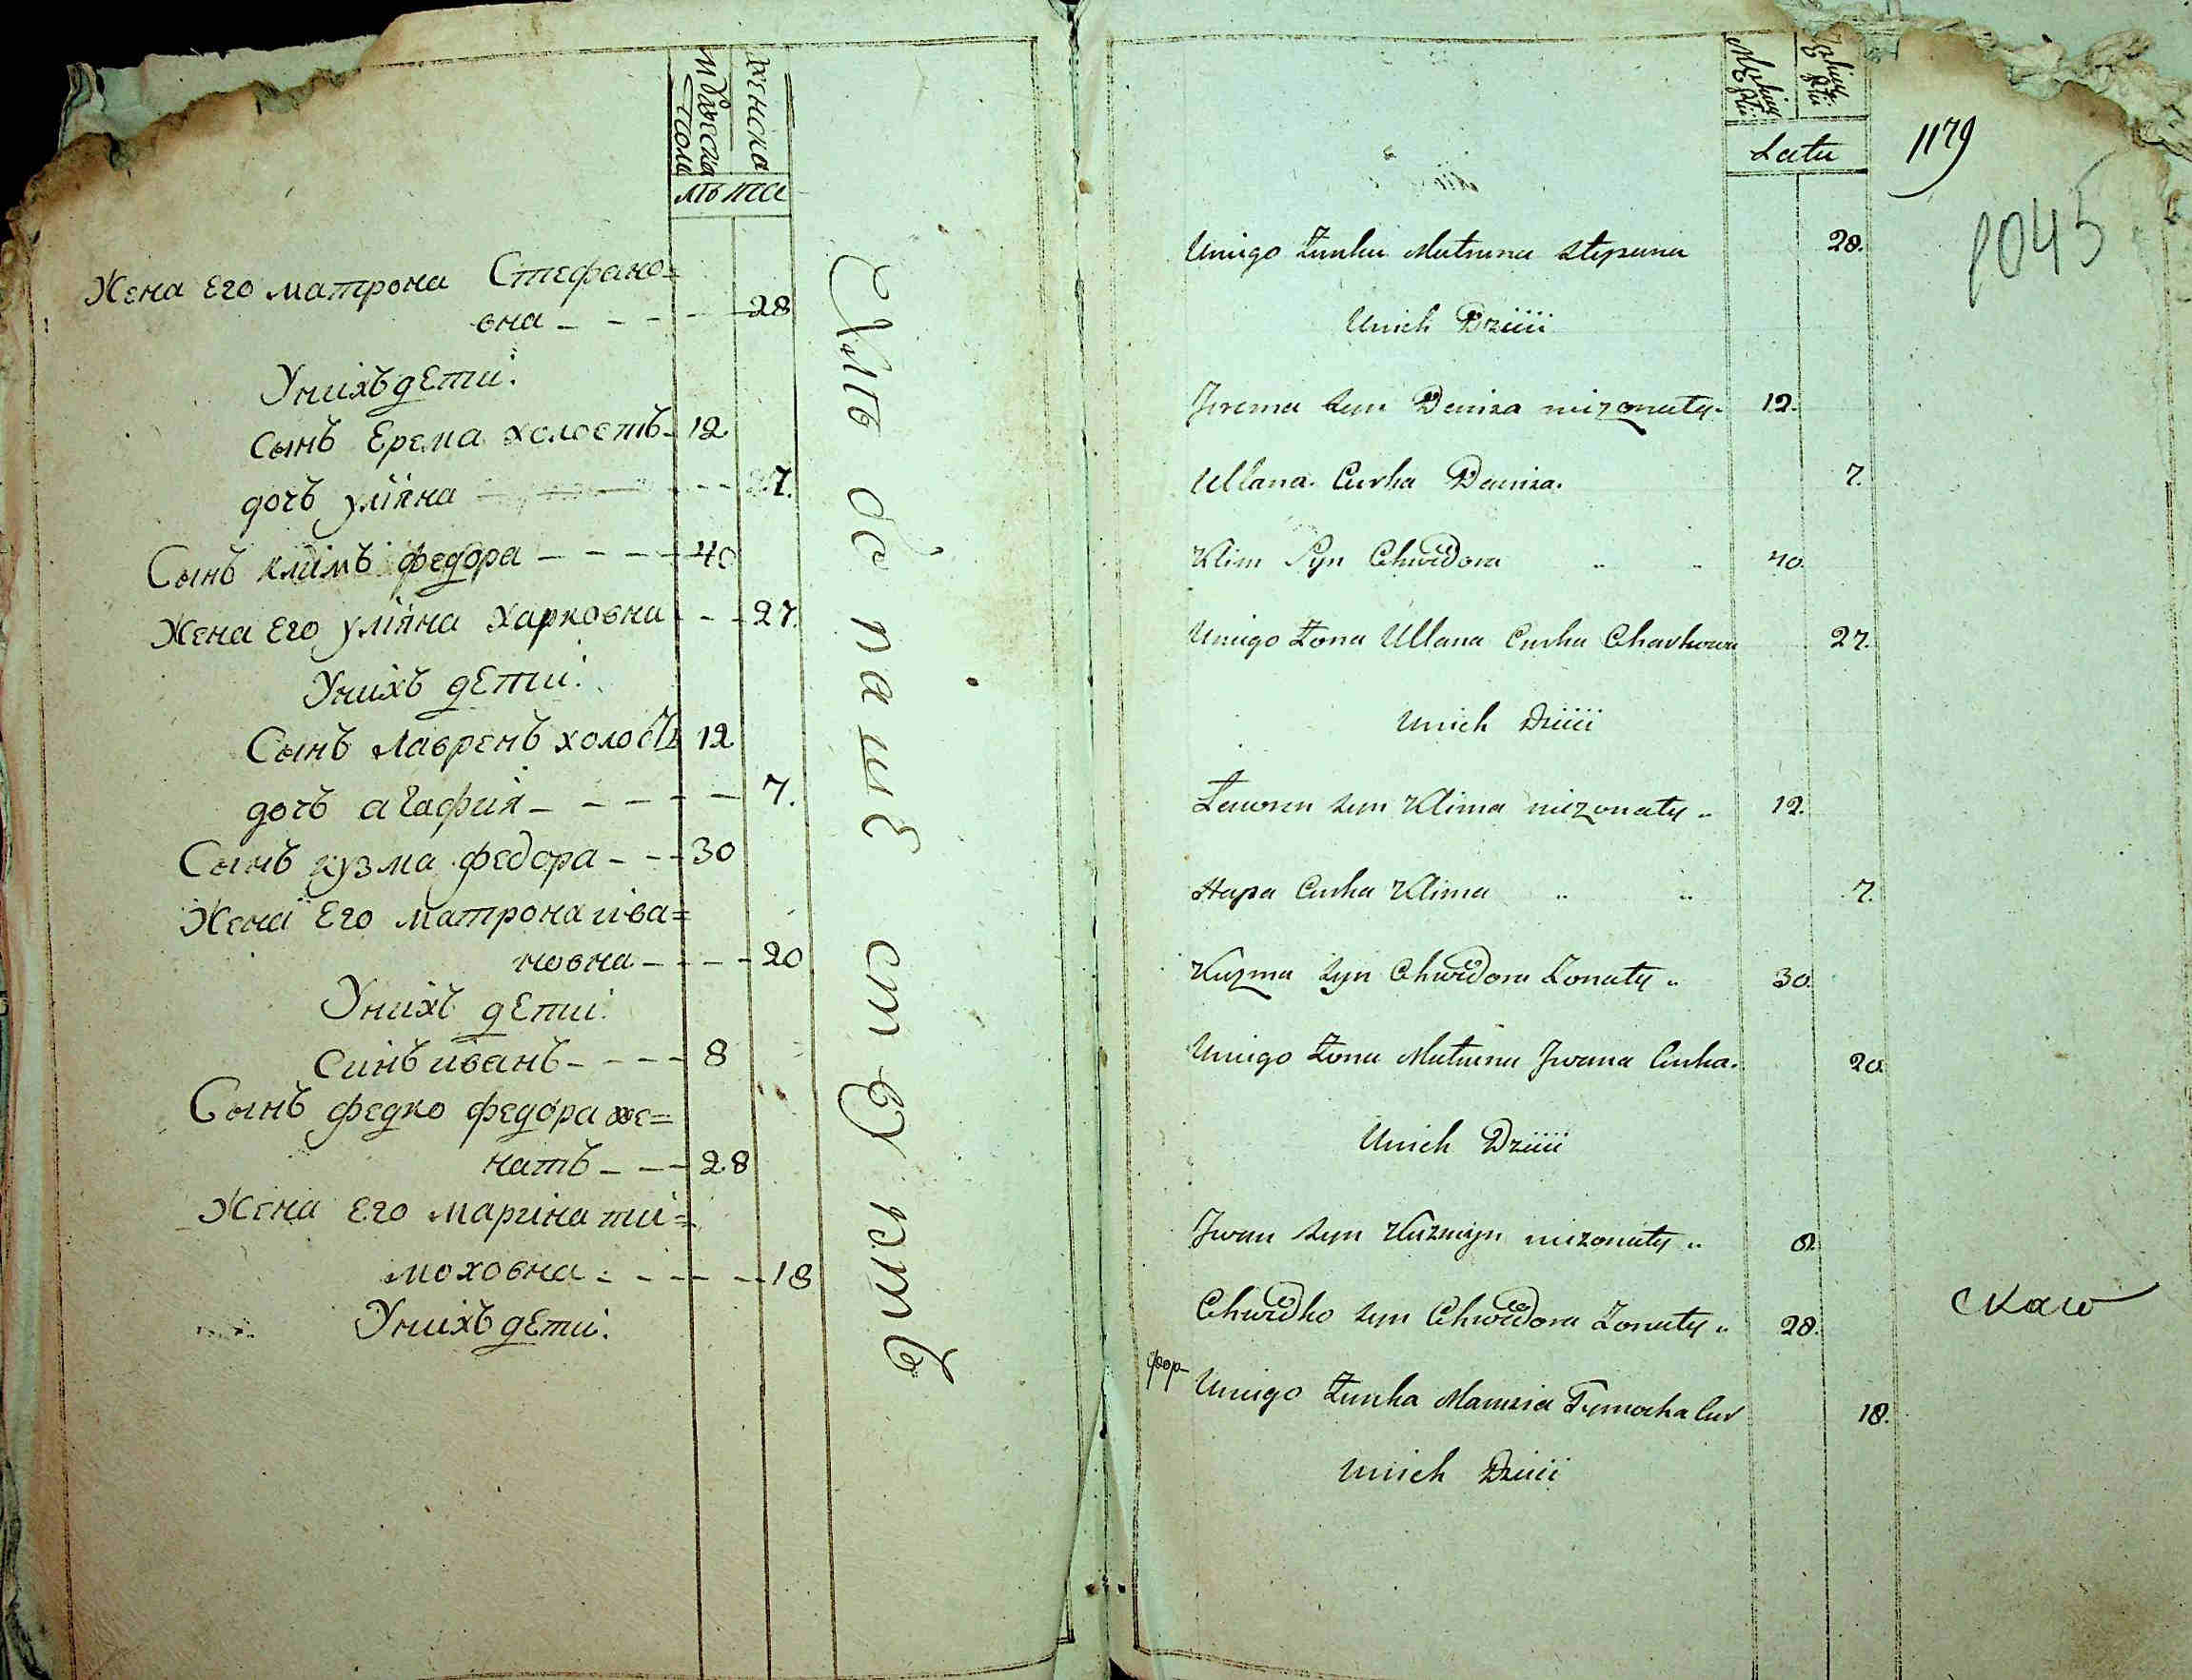 мужеска
пола
женска
лѣта
Жена Его матрона Стефано=
вна - - - - - 28
Унихъ дѣти:
Сынъ Ерема холостъ - 12
дочъ улiяна - - - 7.
Сынъ климъ федора - - - - 40
Жена Его улiяна Харковна - - - 27.
Унихъ дѣти:
Сынъ Лавренъ холостъ 12
дочъ агафия - - - - - 7.
Сынъ кузма федора - - - 30
Жена Его матрона ива=
новна - - - - 20
Унихъ дѣти:
Синъ иванъ - - - - 8
Сынъ федко федора же=
натъ - - - 28
Жена Его марiна ти=
моховна - - - - - 18
Унихъ дѣти:
Latu
1179
1045
Uniego Zunka Matruna Stepana 28.
Unich Dzieii
Jrema Syn Denisa niezonaty. 12.
Ullana Curka Denisa. 7.
Klim Syn Chwedora 40.
Uniego Zona Ullana Curka Charkowa 27.
Unich Dzieii
Lawren Syn Klima niezonaty 12.
Hapa Curka Klima 7.
Kuzma Syn Chwedora Zonaty 30.
Uniego Zona Matruna Jwana Curka. 20.
Unich Dzieii
Jwan Syn Kuzmyn niezonaty 8.
Chwedko Syn Chwedora Zonaty 28.
Uniego Zunka Tymocha Cur 18.
Unich Dzieii